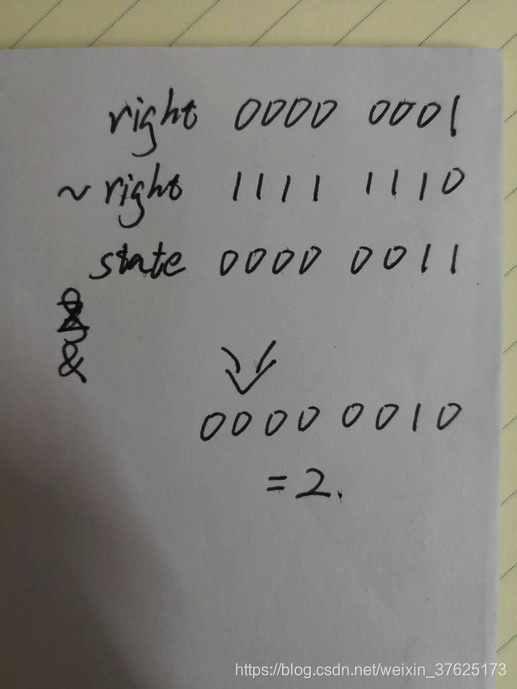 right 0000 0001
~ right 1111 1110
state 0000 0011
&
0000 0010
= 2.
https://blog.csdn.net/weixin_37625173